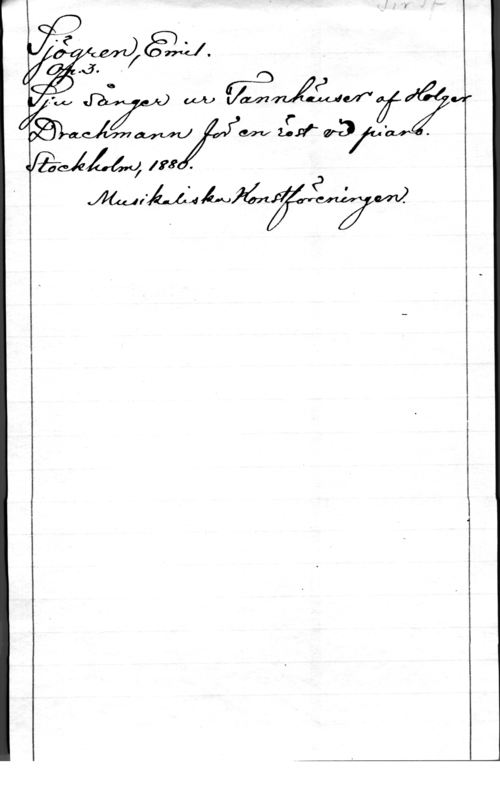 Sjögren, Emil.
Op. 3.
Sju sånger ur Tannhäuser af Holger
Drachmann för en röst vid piano.
Stockholm, 1880.
Musikaliska Konstföreningen.